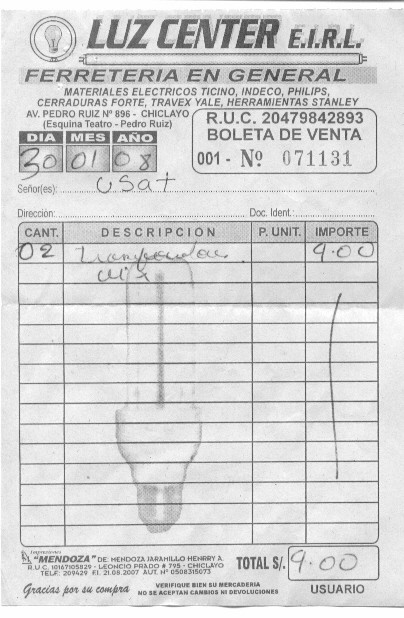 LUZ CENTER E.I.R.L.
FERRETERIA EN GENERAL
MATERIALES ELECTRICOS TICINO, INDECO, PHILIPS,
CERRADURAS FORTE, TRAVEX YALE, HERRAMIENTAS STANLEY
AV. PEDRO RUIZ Nº 896 - CHICLAYO
(Esquina Teatro - Pedro Ruiz)
R.U.C. 20479842893
BOLETA DE VENTA
001 - Nº 071131
DIA MES AÑO
30 01 08
Señor(es): Usat
Dirección: Doc. Ident.:
CANT. DESCRIPCION P. UNIT. IMPORTE
02 9.00
Impresiones
"MENDOZA" DE: MENDOZA JARAMILLO HENRRY A.
R.U.C. 10167105829 - LEONCIO PRADO # 795 - CHICLAYO
TELF: 209429 F.I. 21.08.2007 AUT. Nº 0508315073
TOTAL S/. 9.00
Gracias por su compra
VERIFIQUE BIEN SU MERCADERIA
NO SE ACEPTAN CAMBIOS NI DEVOLUCIONES
USUARIO